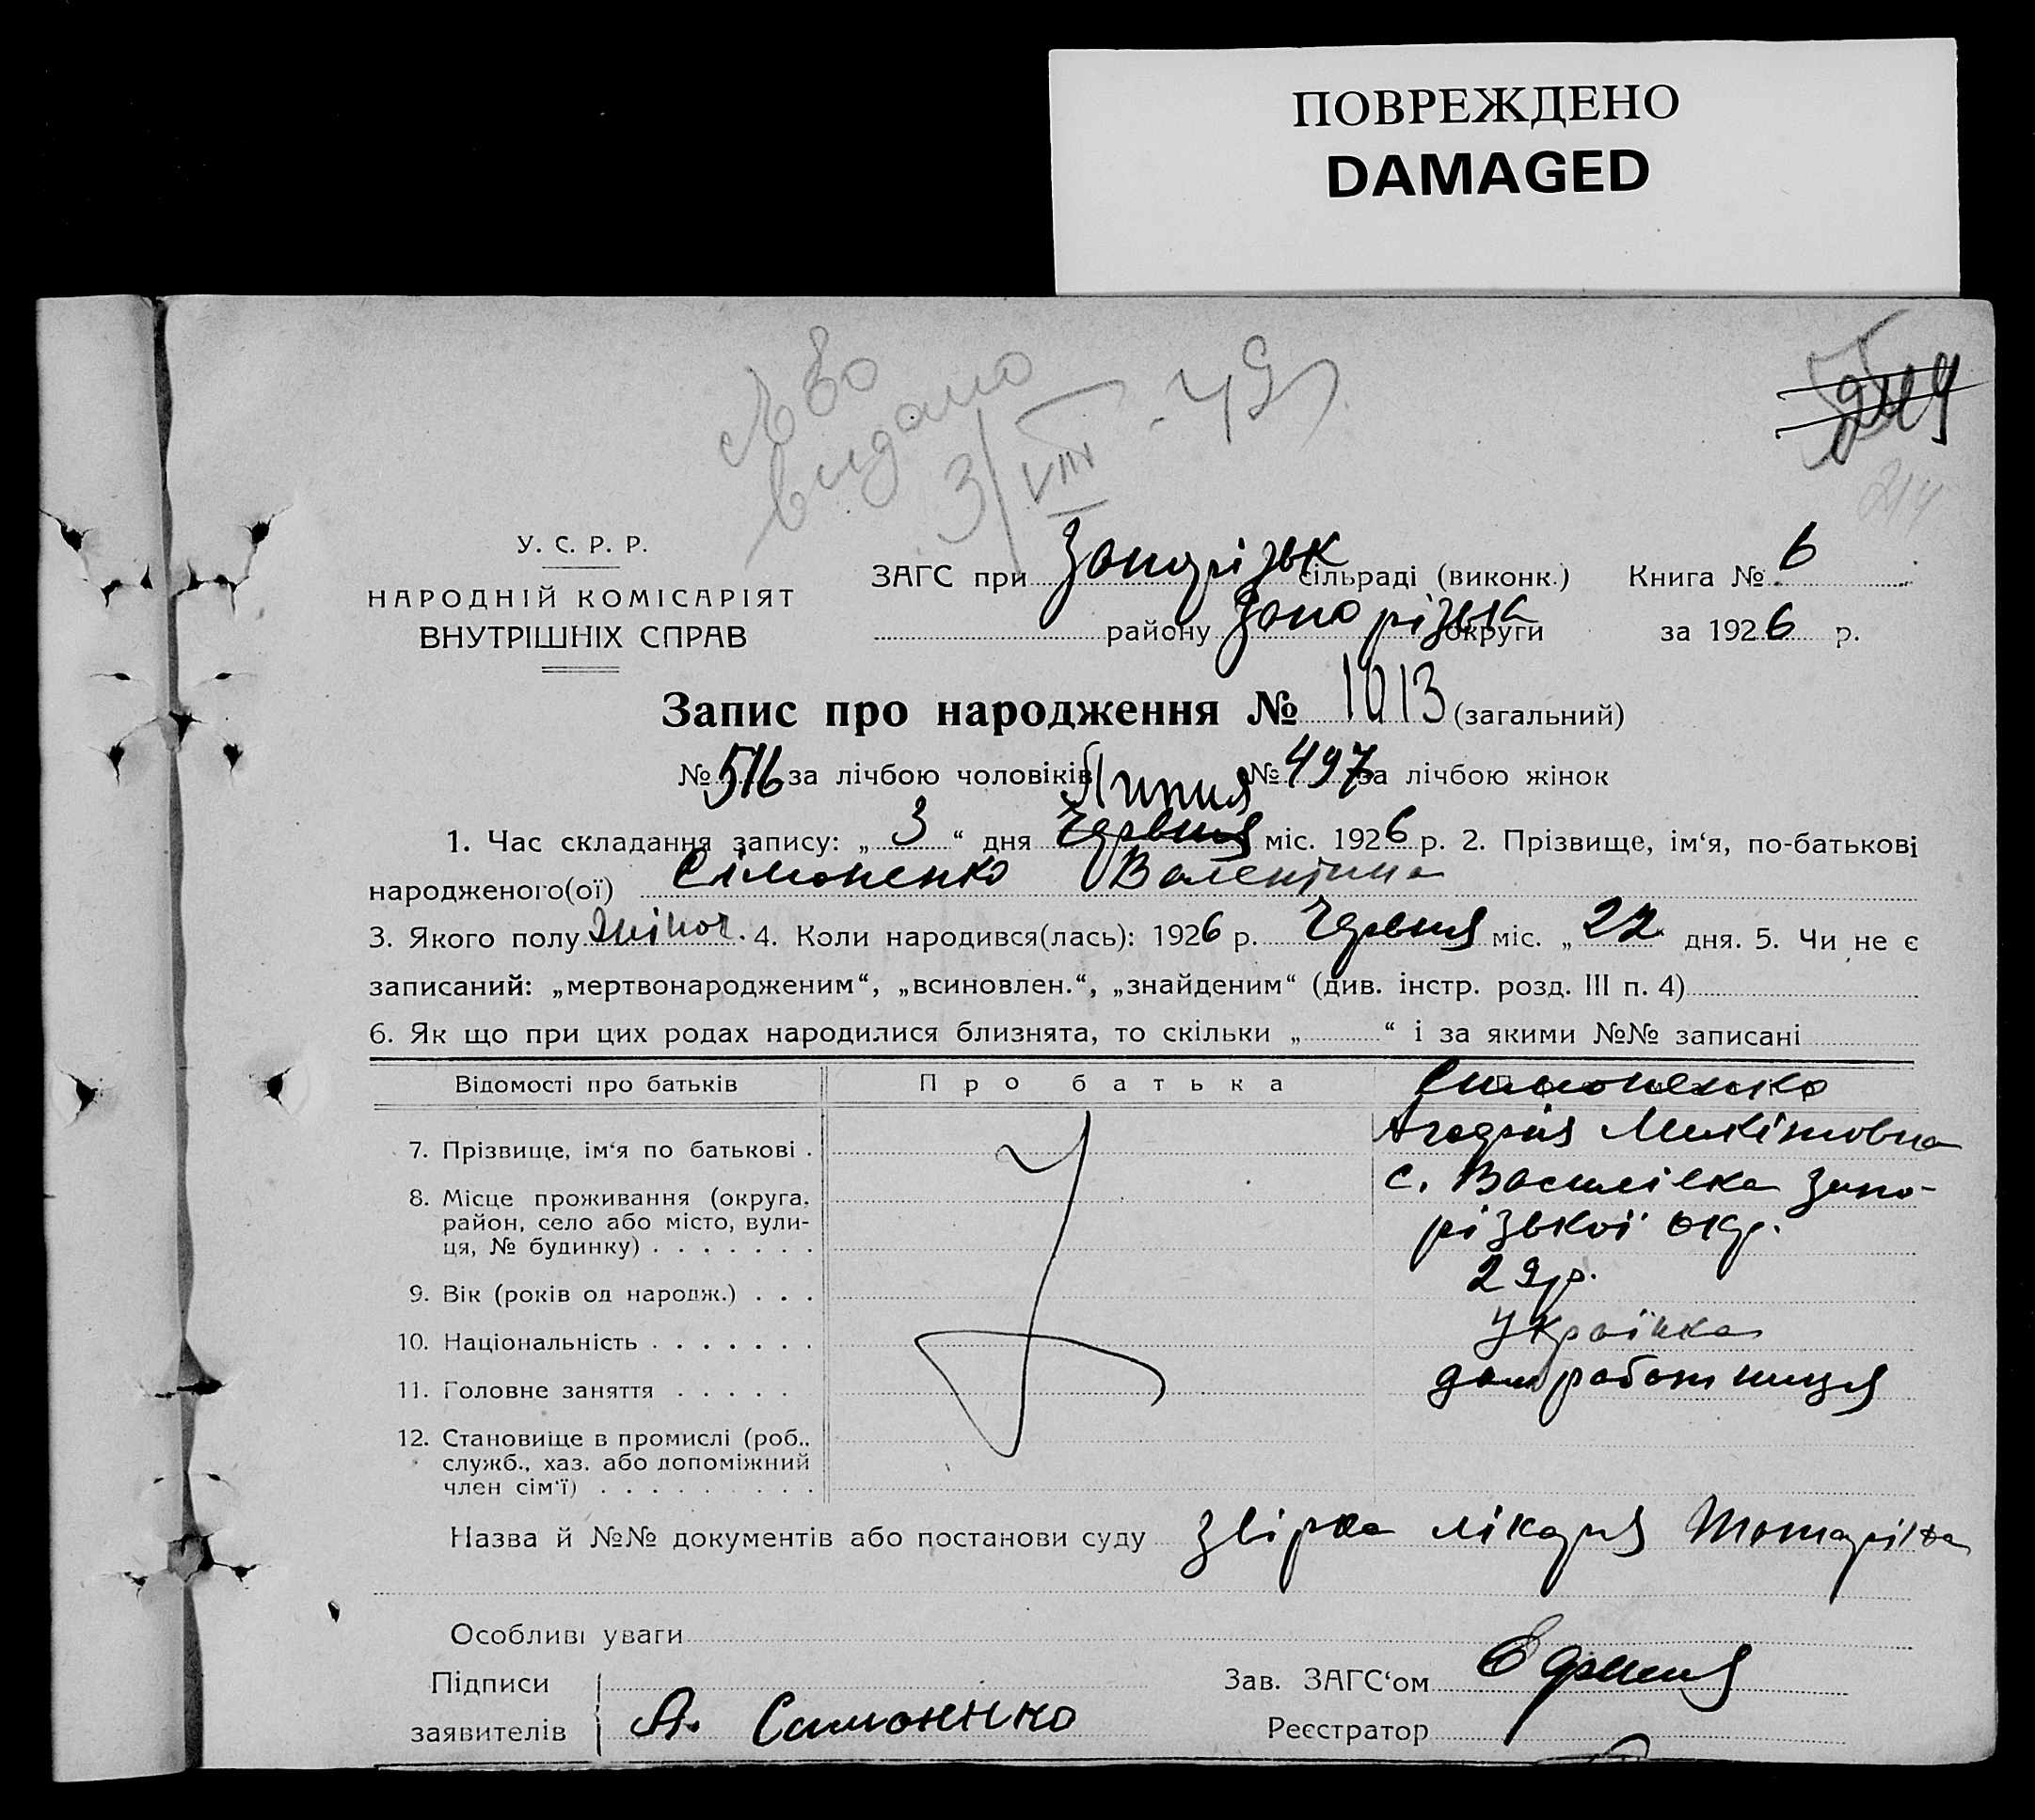 ПОВРЕЖДЕНО
DAMAGED
видано
3/VIII - 49
214
У. С. Р. Р.
НАРОДНІЙ КОМІСАРІЯТ
ВНУТРІШНІХ СПРАВ
ЗАГС при Запорізьк сільраді (виконк.) Книга № 6
району Запорізька округи за 1926 р.
Запис про народження № 1013 (загальний)
№ 516 за лічбою чоловіків № 497 за лічбою жінок
Липня
1. Час складання запису: „ 3 “ дня Червня міс. 1926 р. 2. Прізвище, ім‘я, по-батькові
народженого(ої) Сімоненко Валентина
3. Якого полу жіноч. 4. Коли народився(лась): 1926 р. Червня міс. „ 22 дня. 5. Чи не є
записаний: „мертвонародженим“, „всиновлен.“, „знайденим“ (див. інстр. розд. III п. 4)
6. Як що при цих родах народилися близнята, то скільки „ “ і за якими №№ записані
Відомості про батьків Про батька Симоненко
7. Прізвище, ім‘я по батькові . Микітовна
8. Місце проживання (округа, район, село або місто, вули-ця, № будинку) . . . . . . . с. Василівка Запо-
різької окр.
9. Вік (років од народж.) . . . 29 р.
10. Національність . . . . . . . Українка
11. Головне заняття . . . . . домработниця
12. Становище в промислі (роб.,
служб., хаз. або допоміжний
член сім‘ї) . . . . . . . . .
Назва й №№ документів або постанови суду лікаря
Особливі уваги
Підписи Зав. ЗАГС‘ом
заявителів А. Самоненко Реєстратор